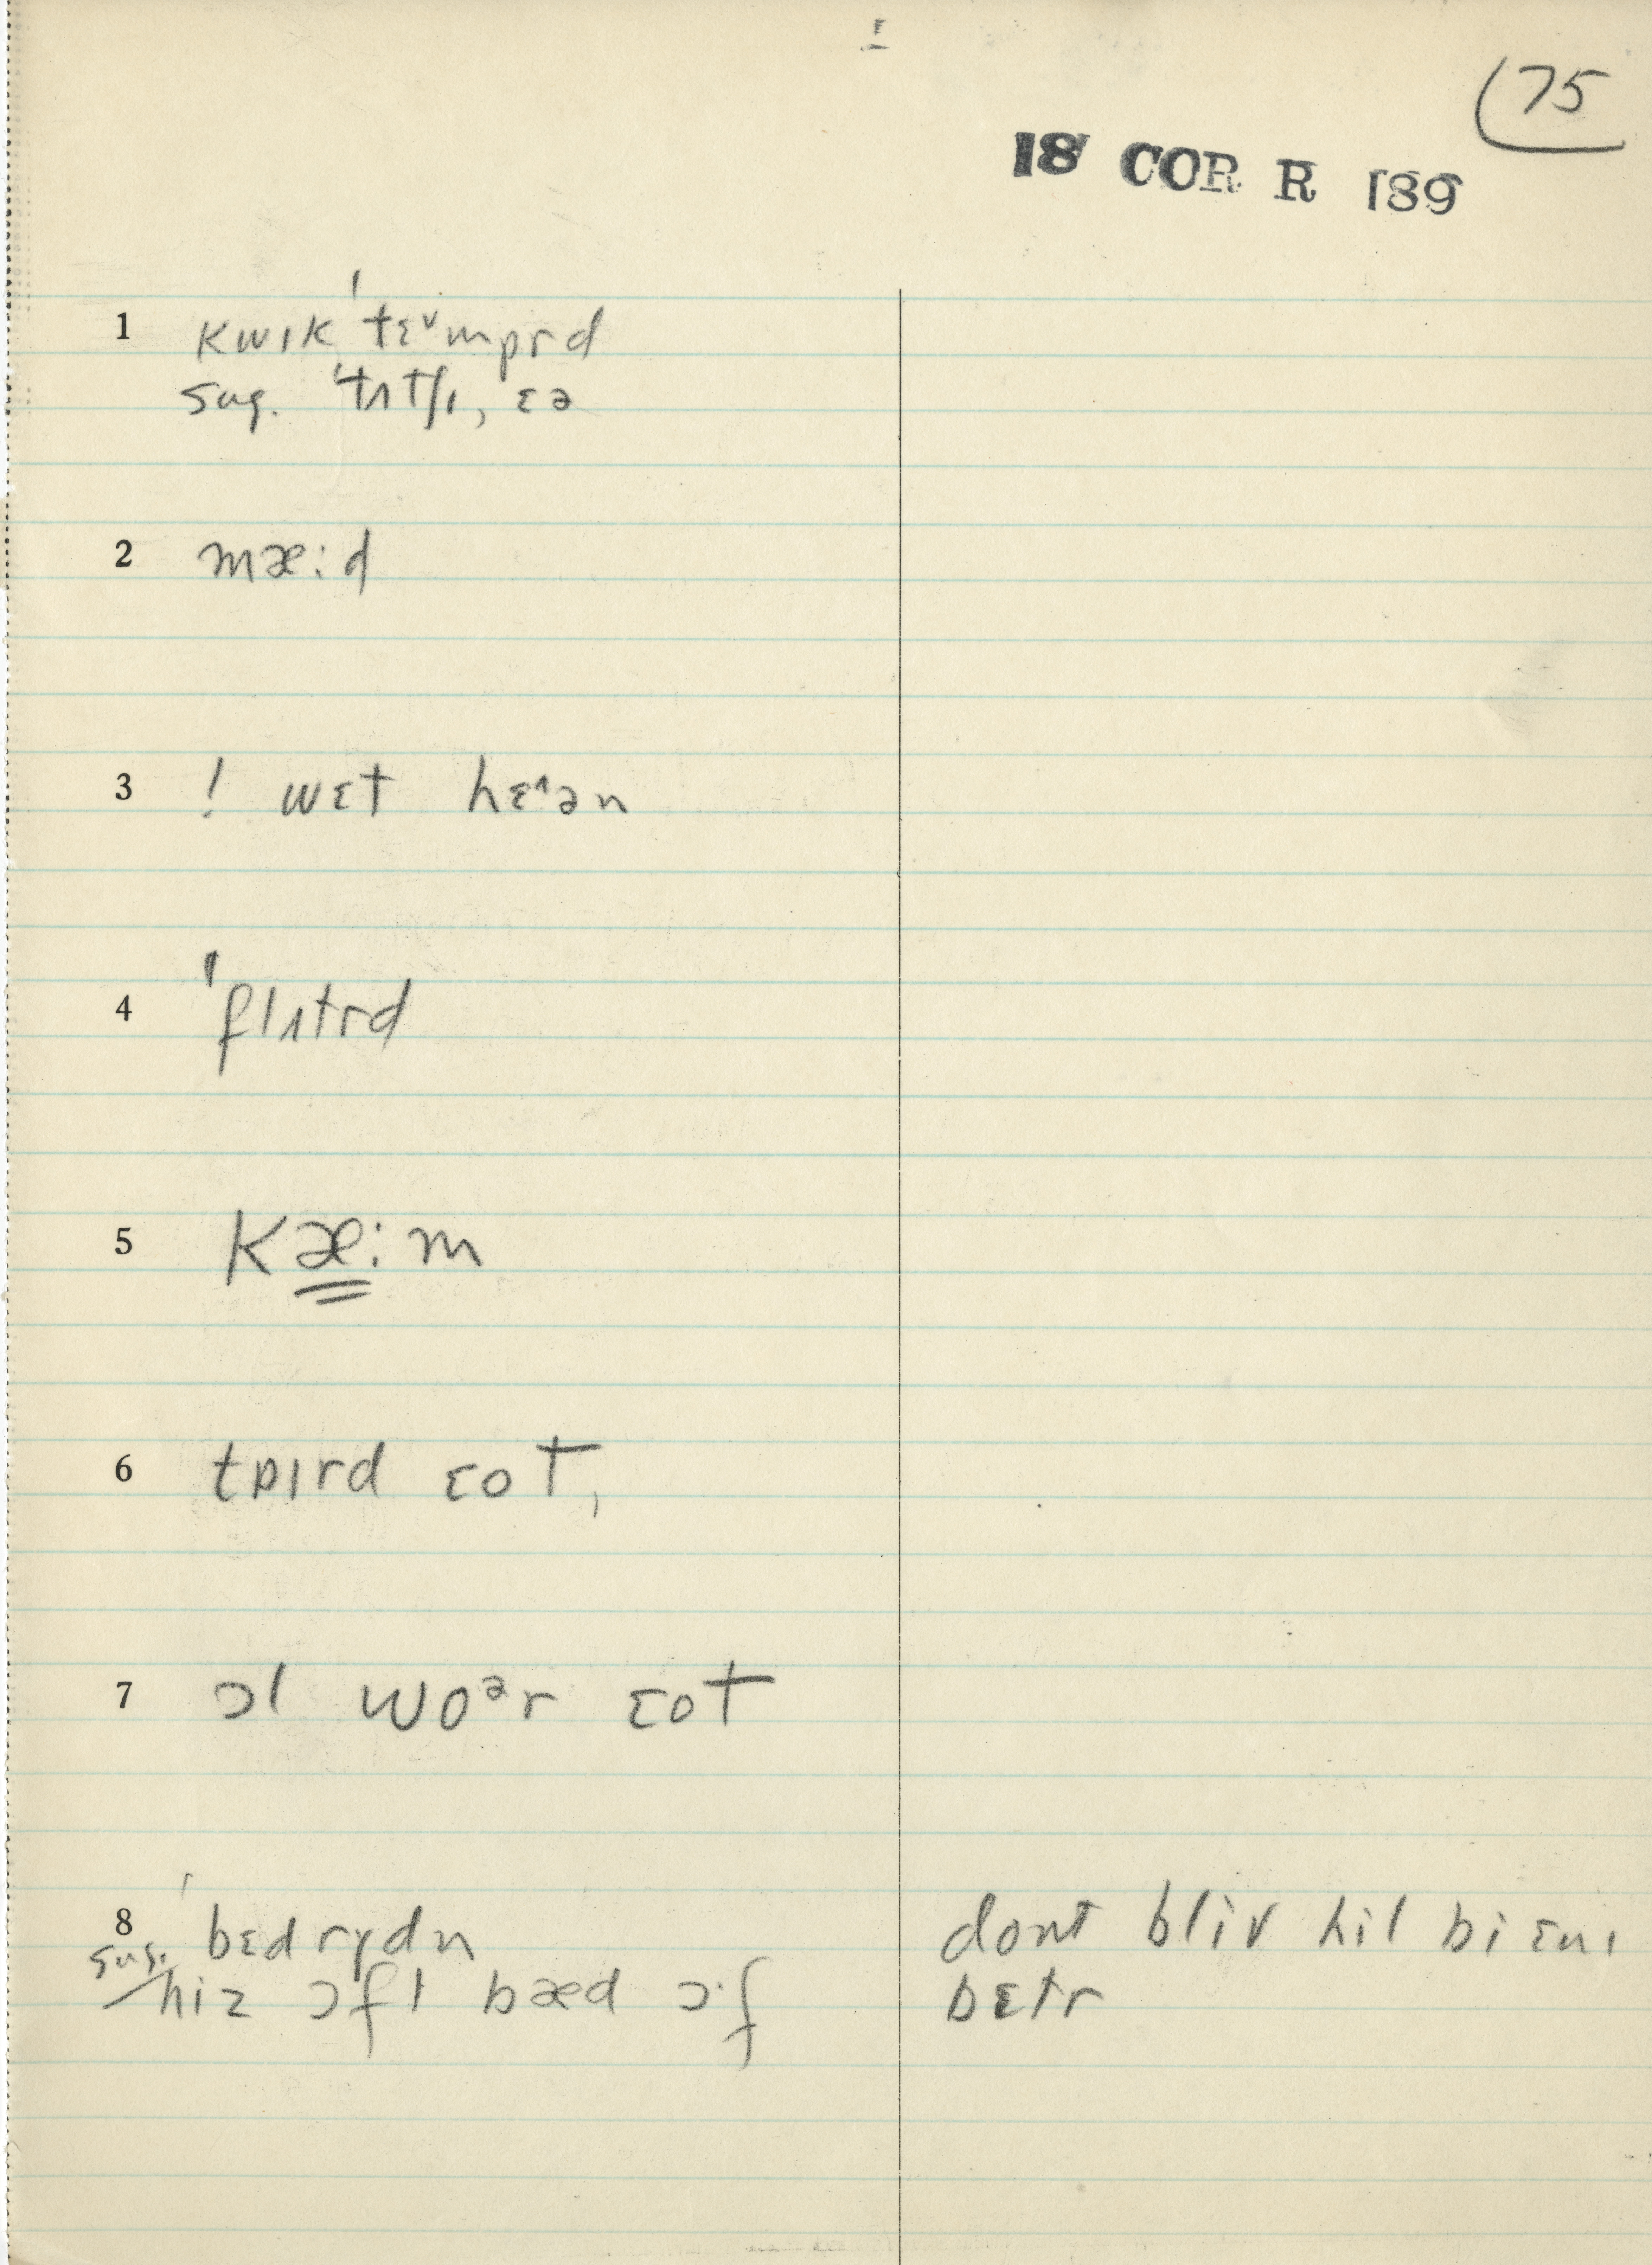 (75
18 COR R 189
1 kwɪk ˈtɛ˅mprd
sug. ˈtʌtʃɪ, ɛə
2 mæ:d
3 ! wɛt hɛ˄ən
4 ˈflʌtrd
5 kæ:m
6 tɒɪrd ɛot,
7 ɔl woᵊr ɛot
8 ˈbɛd rɪdn
sug. hiz ɔfl bæd ɔ·f
dont bliv hil bi ɛnɪ
bɛtr